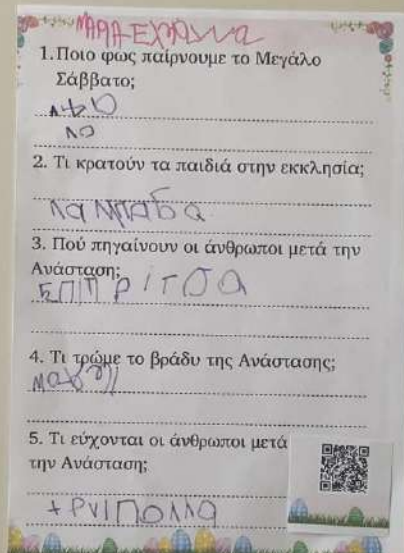 ΜΑΡΑ-ΕΧΑΝΝΑ
1. Ποιο φως παίρνουμε το Μεγάλο
Σάββατο;
ΛΟ
2. Τι κρατούν τα παιδιά στην εκκλησία;
ΛαΜΠαδα
3. Πού πηγαίνουν οι άνθρωποι μετά την
Ανάσταση;
ΣΠΙΠΡΙΤΣΑ
4. Τι τρώμε το βράδυ της Ανάστασης;
5. Τι εύχονται οι άνθρωποι μετά
την Ανάσταση;
+ΡΝΙΠΟΛΛΑ